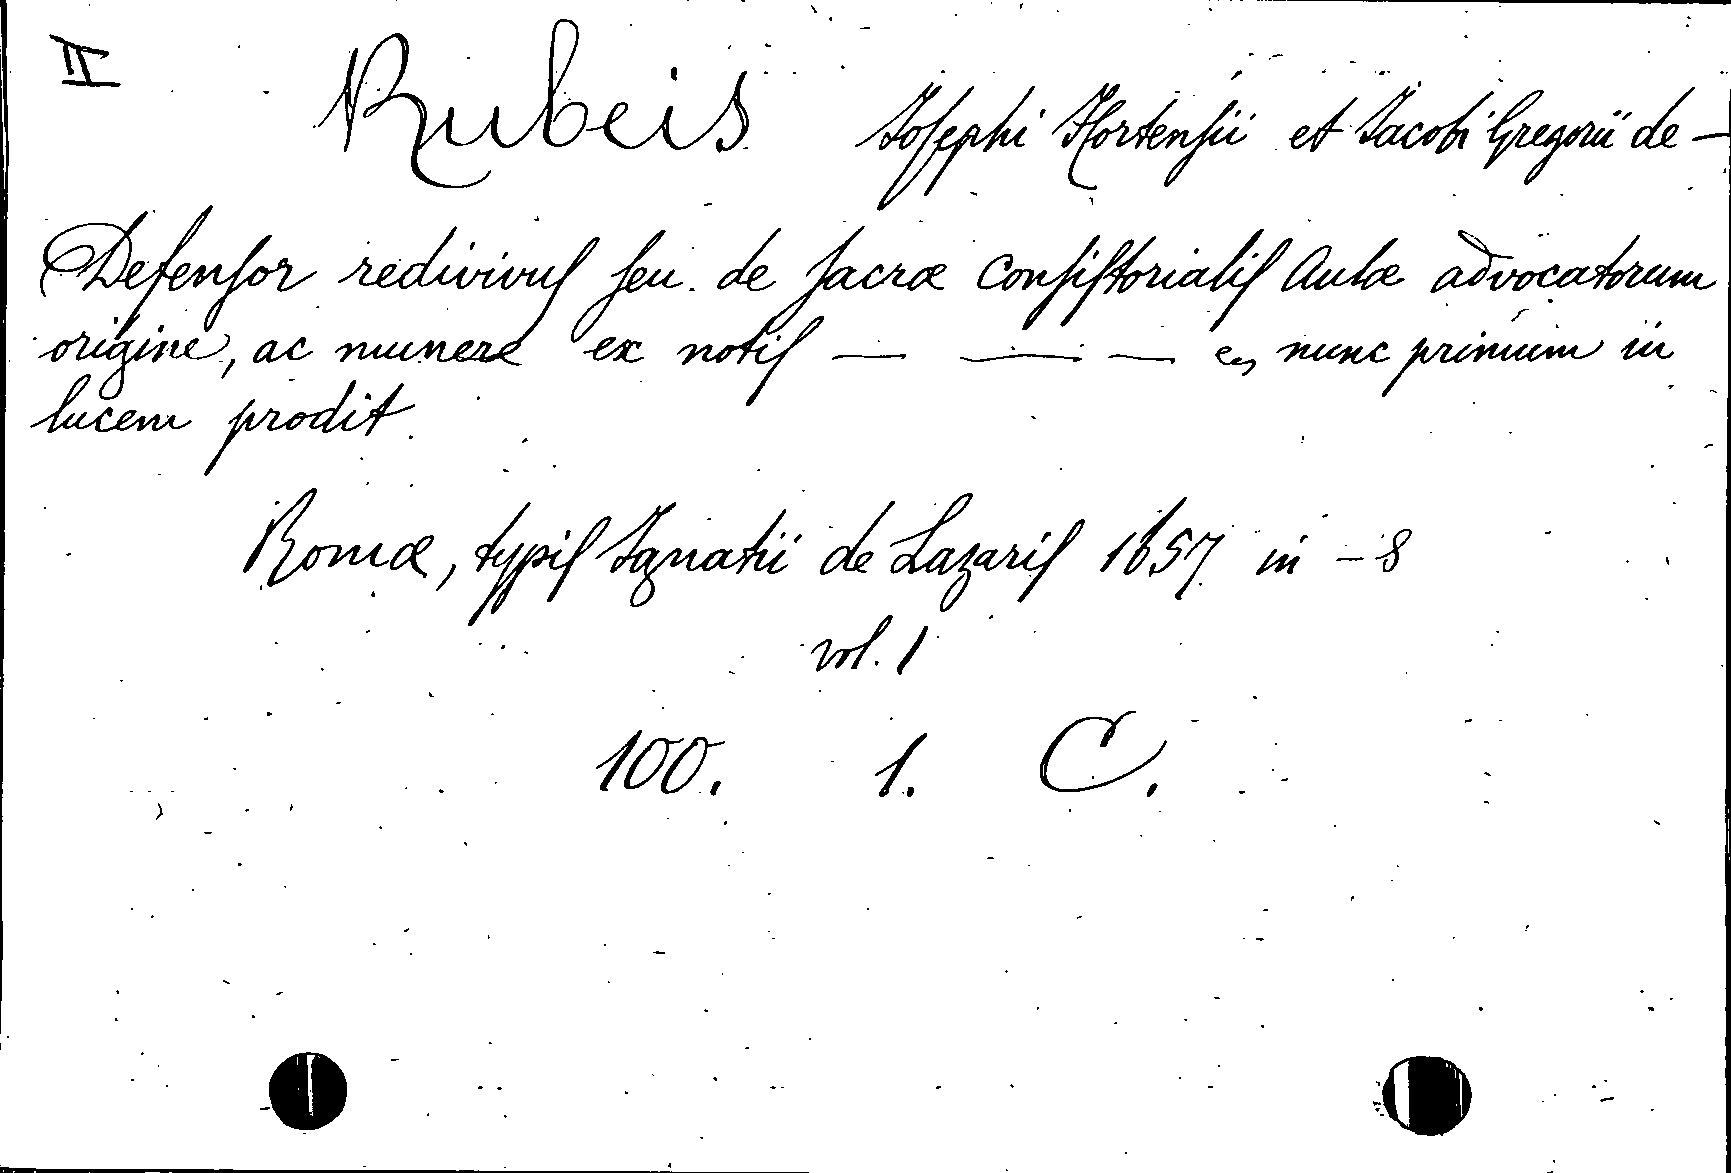 II
Rubeis Josephi Hortensii et Jacobi Gregorii de —
Defensor redivivus seu de sacræ consistorialis Aulæ advocatorum
origine, ac munere ex notis — — — &, nunc primum in
lucem prodit.
Romæ, typis Ignatii de Lazaris 1657 in - 8
vol. 1
100. 1. C.